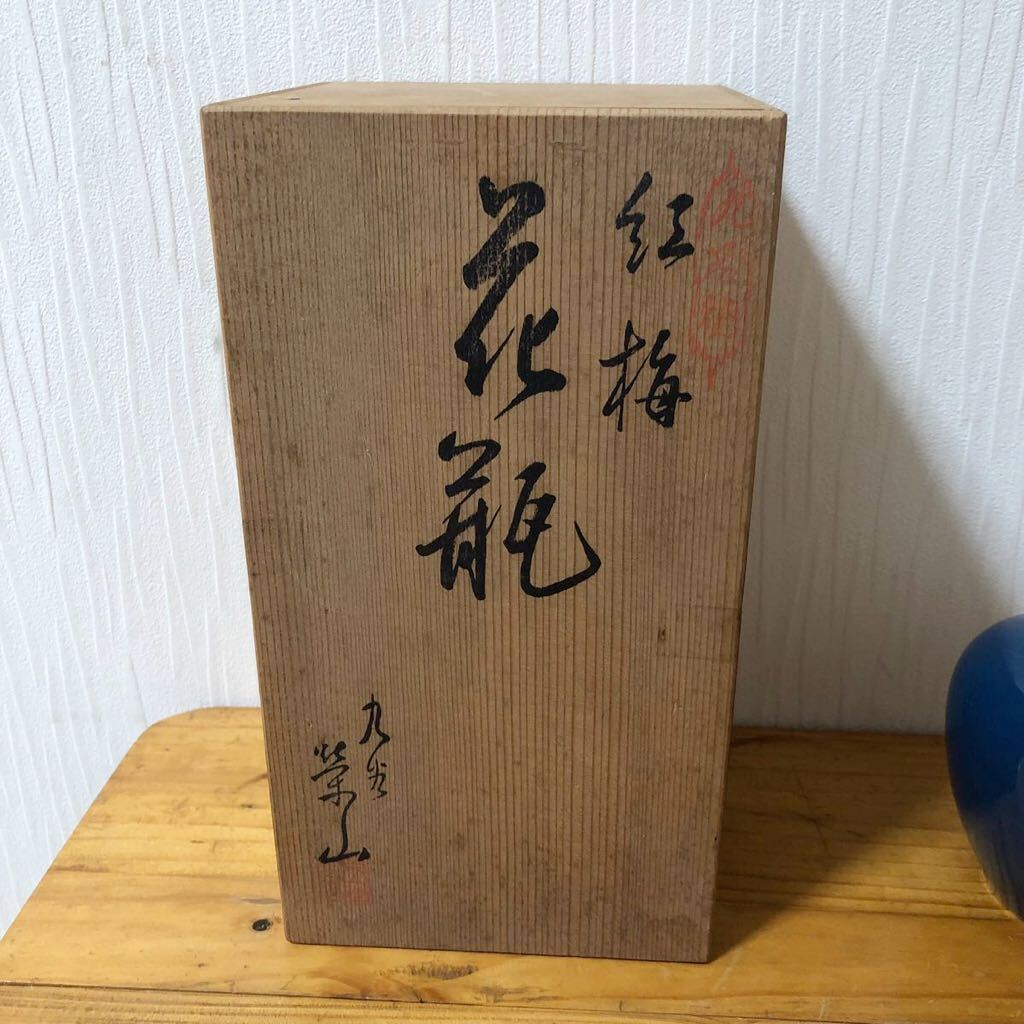 紅梅
花瓶
九谷
栄山